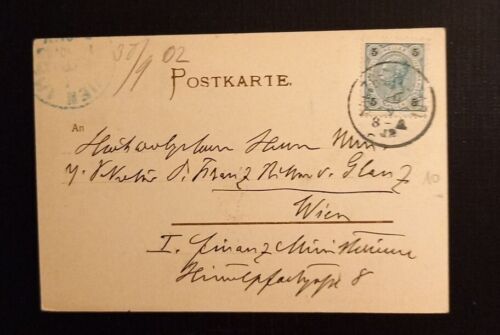 30/9 02
POSTKARTE.
5 5
5 5
8-
An
Hochwolgeboren Herrn
Franz Ritter v. Glanz
10
Wien
I. Finanz Ministerium
Himmelpfortgasse 8